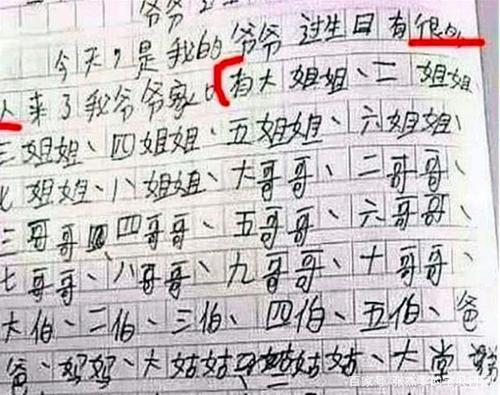 爷爷
今天,是我的爷爷过生日有很多
人来了我爷爷家,有大姐姐、二姐姐、
三姐姐、四姐姐、五姐姐、六姐姐、
七姐姐、八姐姐、大哥哥、二哥哥、
三哥哥、四哥哥、五哥哥、六哥哥、
七哥哥、八哥哥、九哥哥、十哥哥、
大伯、二伯、三伯、四伯、五伯、爸
爸、妈妈、大姑姑、姑姑、大堂